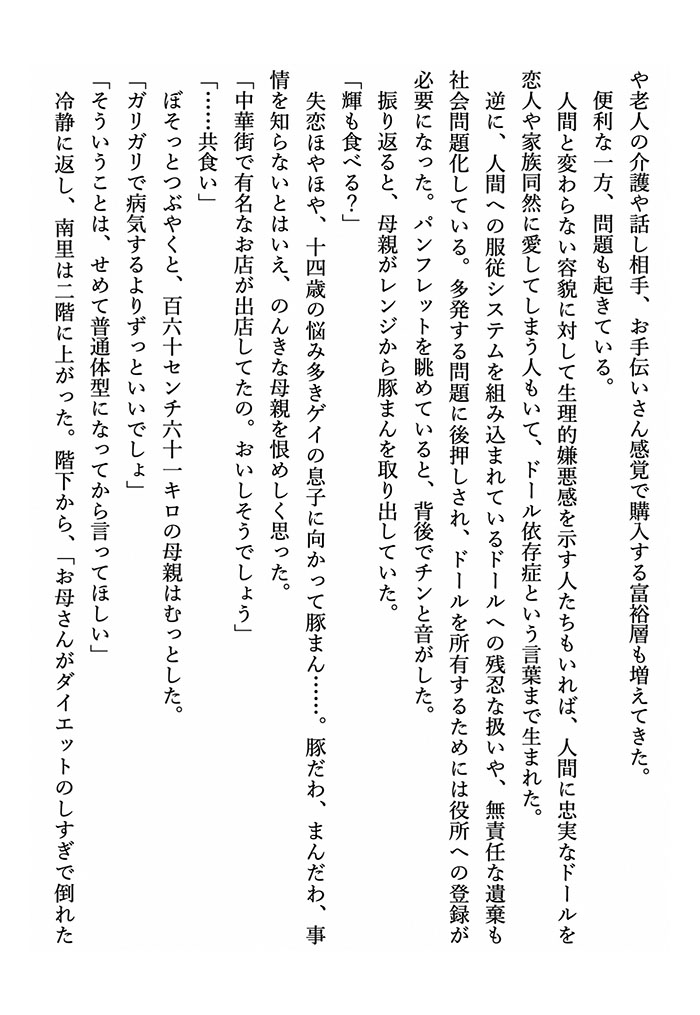 や老人の介護や話し相手、お手伝いさん感覚で購入する富裕層も増えてきた。
便利な一方、問題も起きている。
人間と変わらない容貌に対して生理的嫌悪感を示す人たちもいれば、人間に忠実なドールを
恋人や家族同然に愛してしまう人もいて、ドール依存症という言葉まで生まれた。
逆に、人間への服従システムを組み込まれているドールへの残忍な扱いや、無責任な遺棄も
社会問題化している。多発する問題に後押しされ、ドールを所有するためには役所への登録が
必要になった。パンフレットを眺めていると、背後でチンと音がした。
振り返ると、母親がレンジから豚まんを取り出していた。
「輝も食べる?」
失恋ほやほや、十四歳の悩み多きゲイの息子に向かって豚まん……。豚だわ、まんだわ、事
情を知らないとはいえ、のんきな母親を恨めしく思った。
「中華街で有名なお店が出店してたの。おいしそうでしょう」
「……共食い」
ぼそっとつぶやくと、百六十センチ六十一キロの母親はむっとした。
「ガリガリで病気するよりずっといいでしょ」
「そういうことは、せめて普通体型になってから言ってほしい」
冷静に返し、南里は二階に上がった。階下から、「お母さんがダイエットのしすぎで倒れた